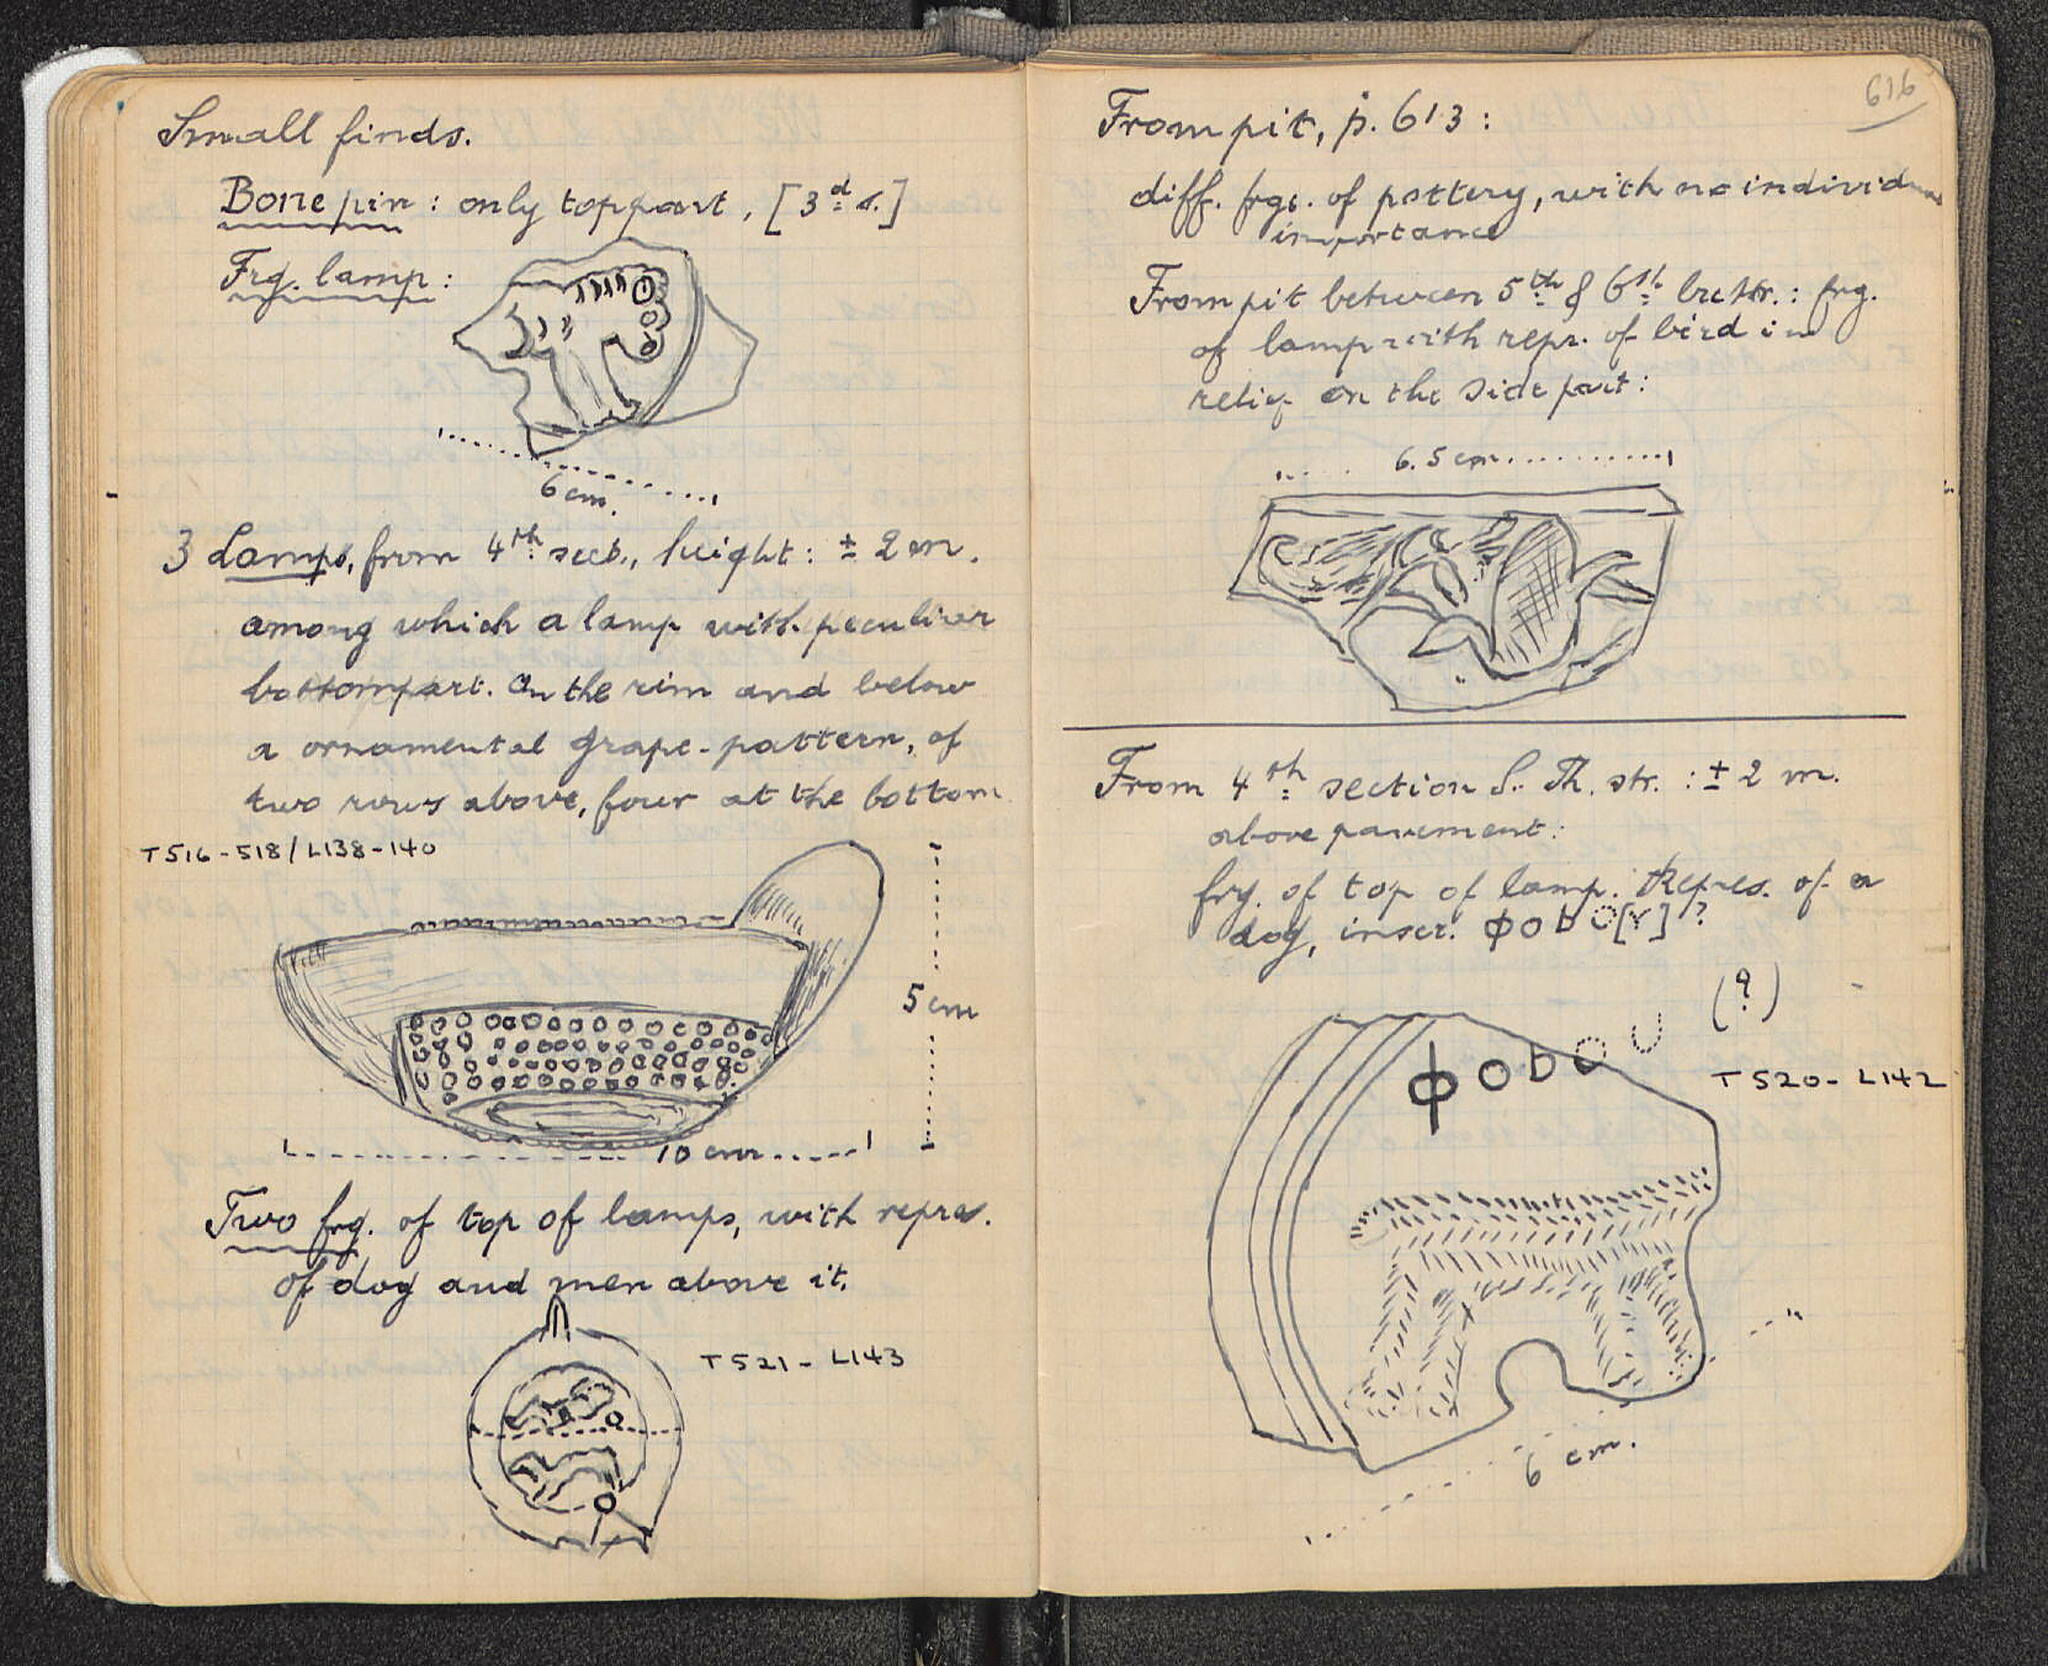 Small finds.
Bone pin : only toppart, [3d s.]
Frg. lamp :
6 cm.
3 Lamps, from 4th sect., height : ± 2 m.
among which a lamp with peculiar
bottompart. On the rim and below
a ornamental grape-pattern, of
two rows above, four at the bottom
T516-518/L138-140
5 cm
10 cm
Two frg. of top of lamps, with repres.
of dog and men above it.
T521 - L143
616
From pit, p. 613 :
diff. frgs. of pottery, with no individual
importance
From pit between 5th & 6th buttr. : frg.
of lamp with repr. of bird in
relief on the side part :
6.5 cm
From 4th section S. Th. str. : ± 2 m.
above pavement :
frg. of top of lamp. Repres. of a
dog, inscr. ϕobo[v] ?
(?)
ϕobou
T520 - L142
6 cm.